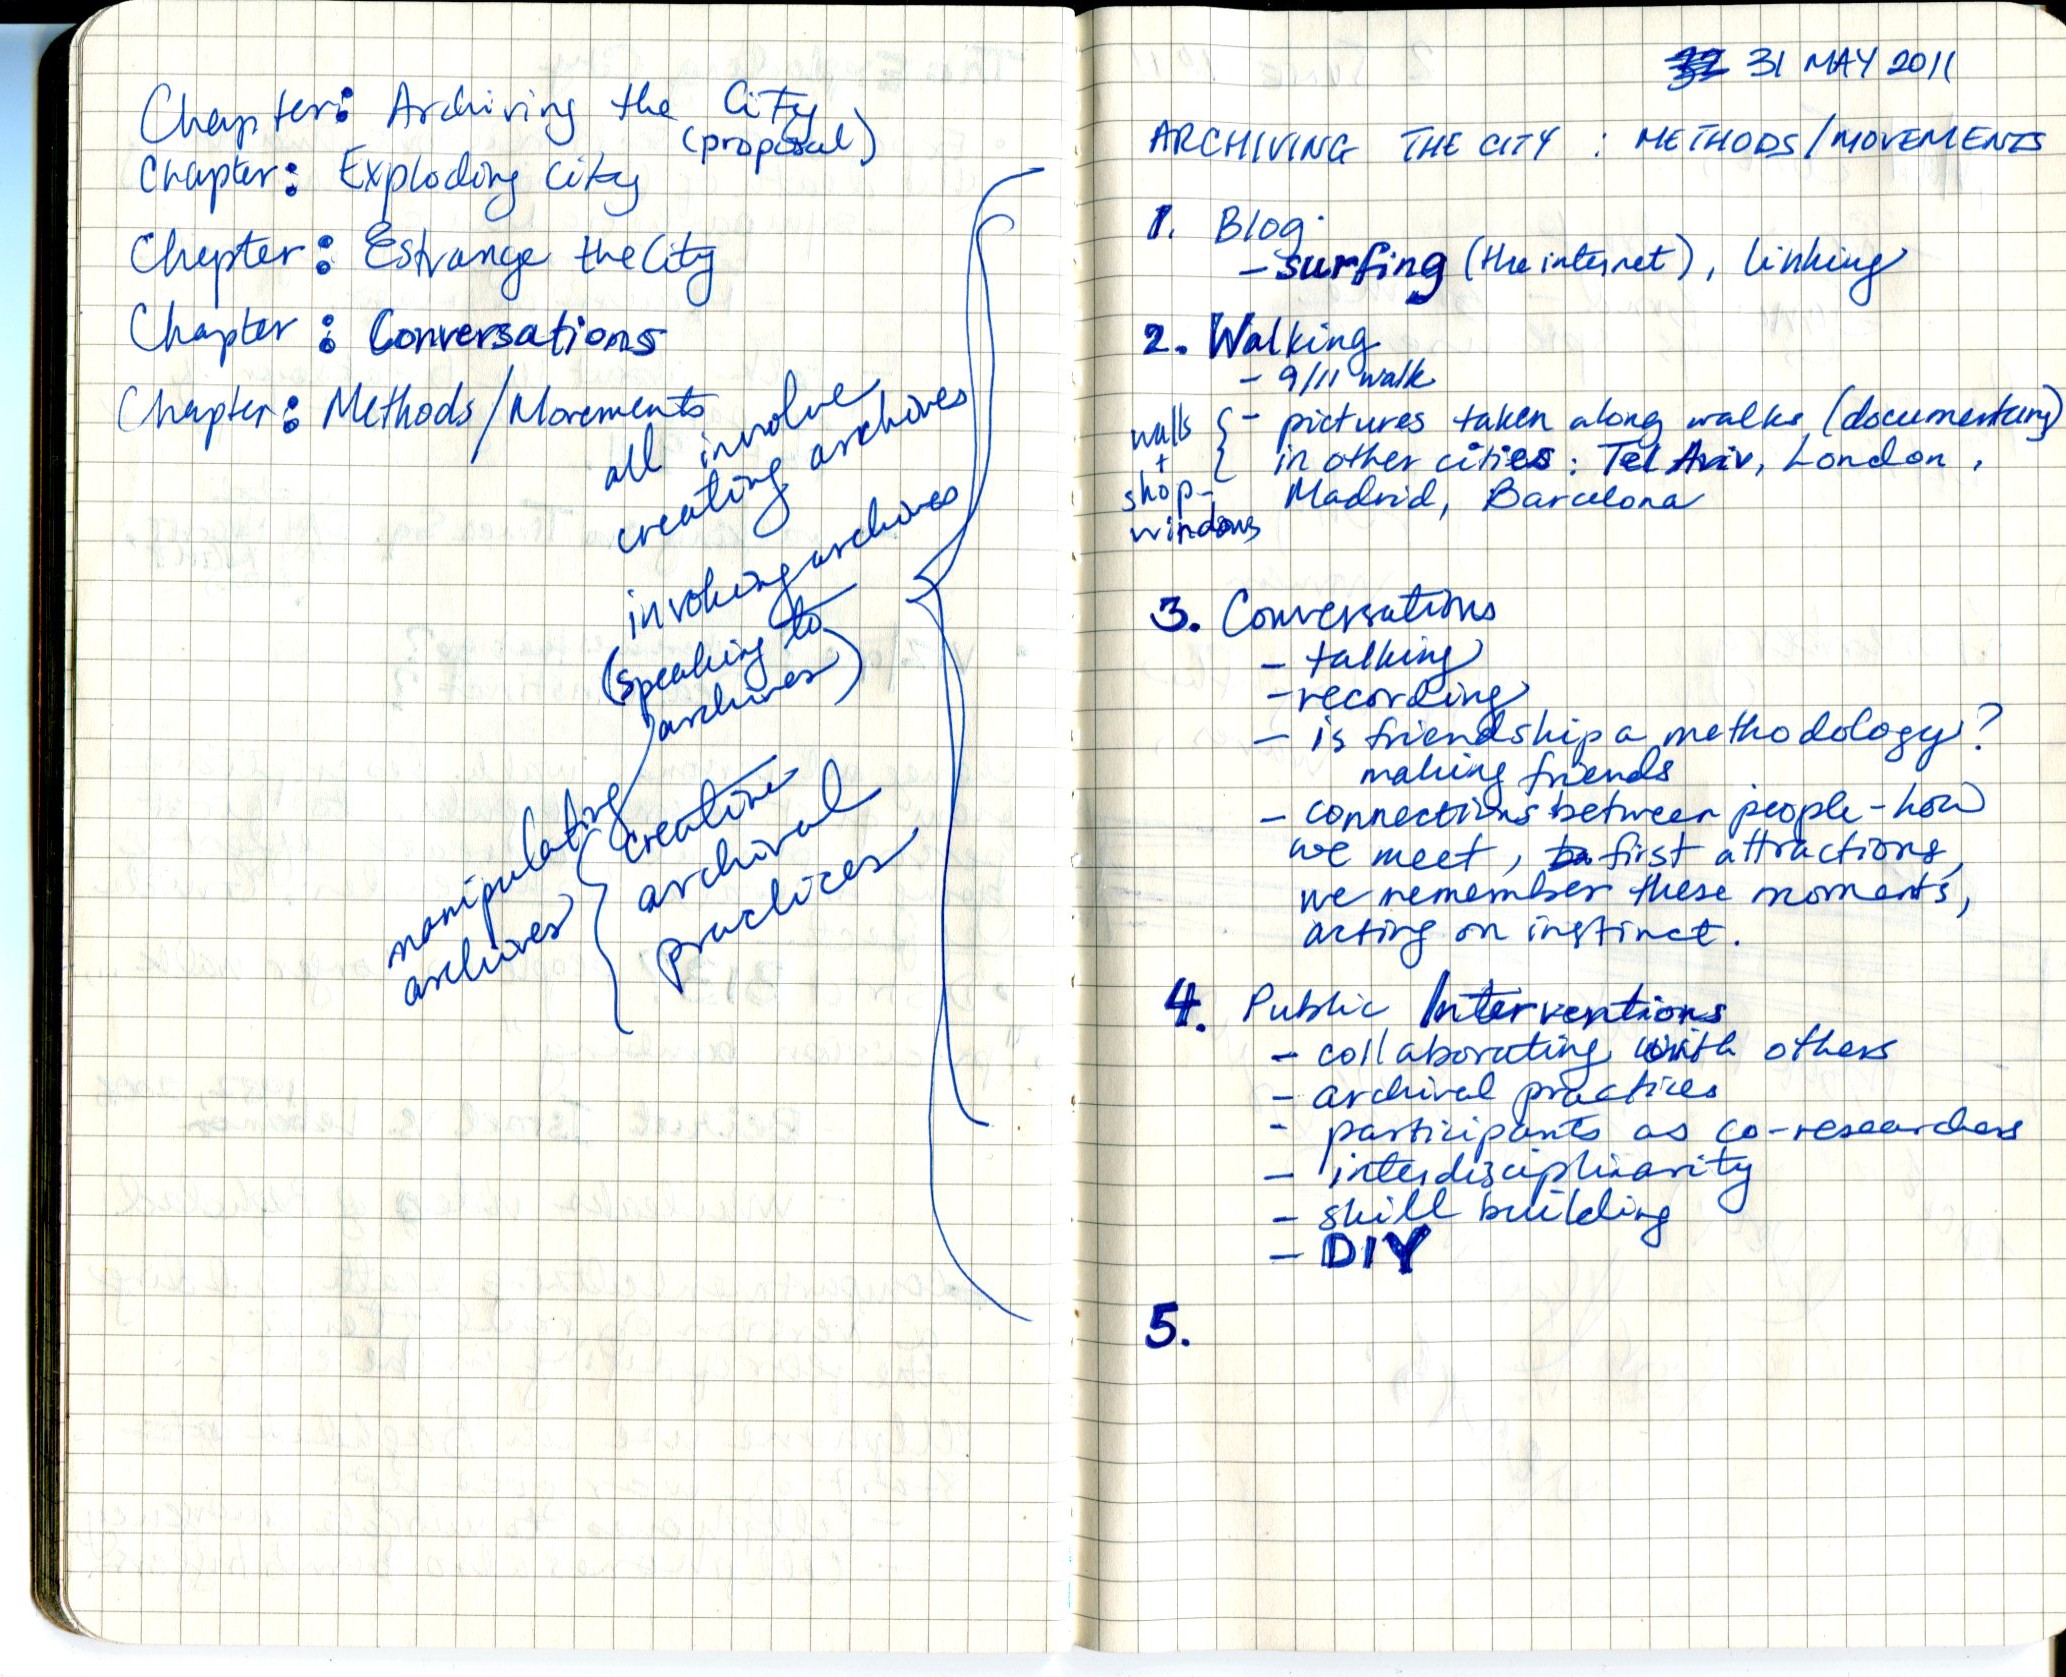 Chapter: Archiving the City
(proposal)
Chapter: Exploding City
Chapter: Estrange the City
Chapter: Conversations
Chapter: Methods/Movements
all involve
creating archives
invoking archives
(speaking to
archives)
manipulating
archives
creative
archival
practices
31 MAY 2011
ARCHIVING THE CITY : METHODS/MOVEMENTS
1. Blog
- surfing (the internet), linking
2. Walking
- 9/11 walk
- pictures taken along walks (documentary)
in other cities: Tel Aviv, London,
Madrid, Barcelona
walls
+
shop-
windows
3. Conversations
- talking
- recording
- is friendship a methodology?
making friends
- connections between people - how
we meet, first attractions,
we remember these moments,
acting on instinct.
4. Public Interventions
- collaborating with others
- archival practices
- participants as co-researchers
- interdisciplinarity
- skill building
- DIY
5.